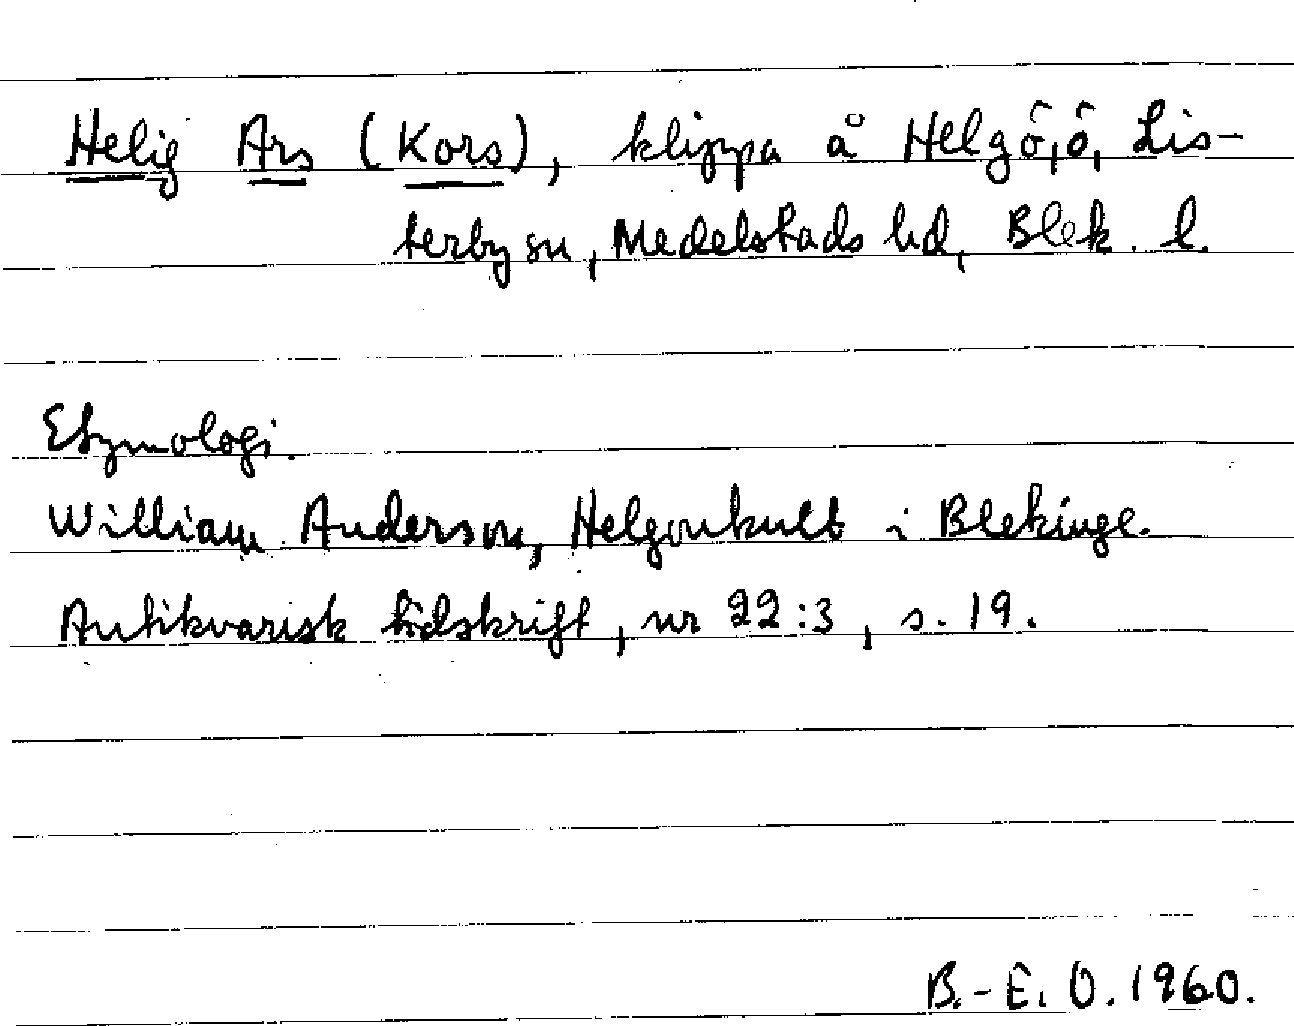 Helig Ars (Kors), klippa å Helgö, ö, Lis-
terby sn, Medelstads hd, Blek. l.
Etymologi.
William Anderson, Helgonkult i Blekinge.
Antikvarisk tidskrift, nr 22:3, s. 19.
B.-E. O. 1960.